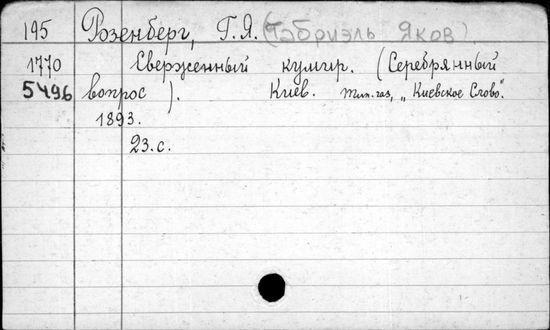 195 Розенберг, Г. Я. (Габриэль Яков)
1770 Сверженный кумир. (Серебрянный
5496 вопрос). Киев. тип. газ. „Киевское Слово".
1893.
23. с.